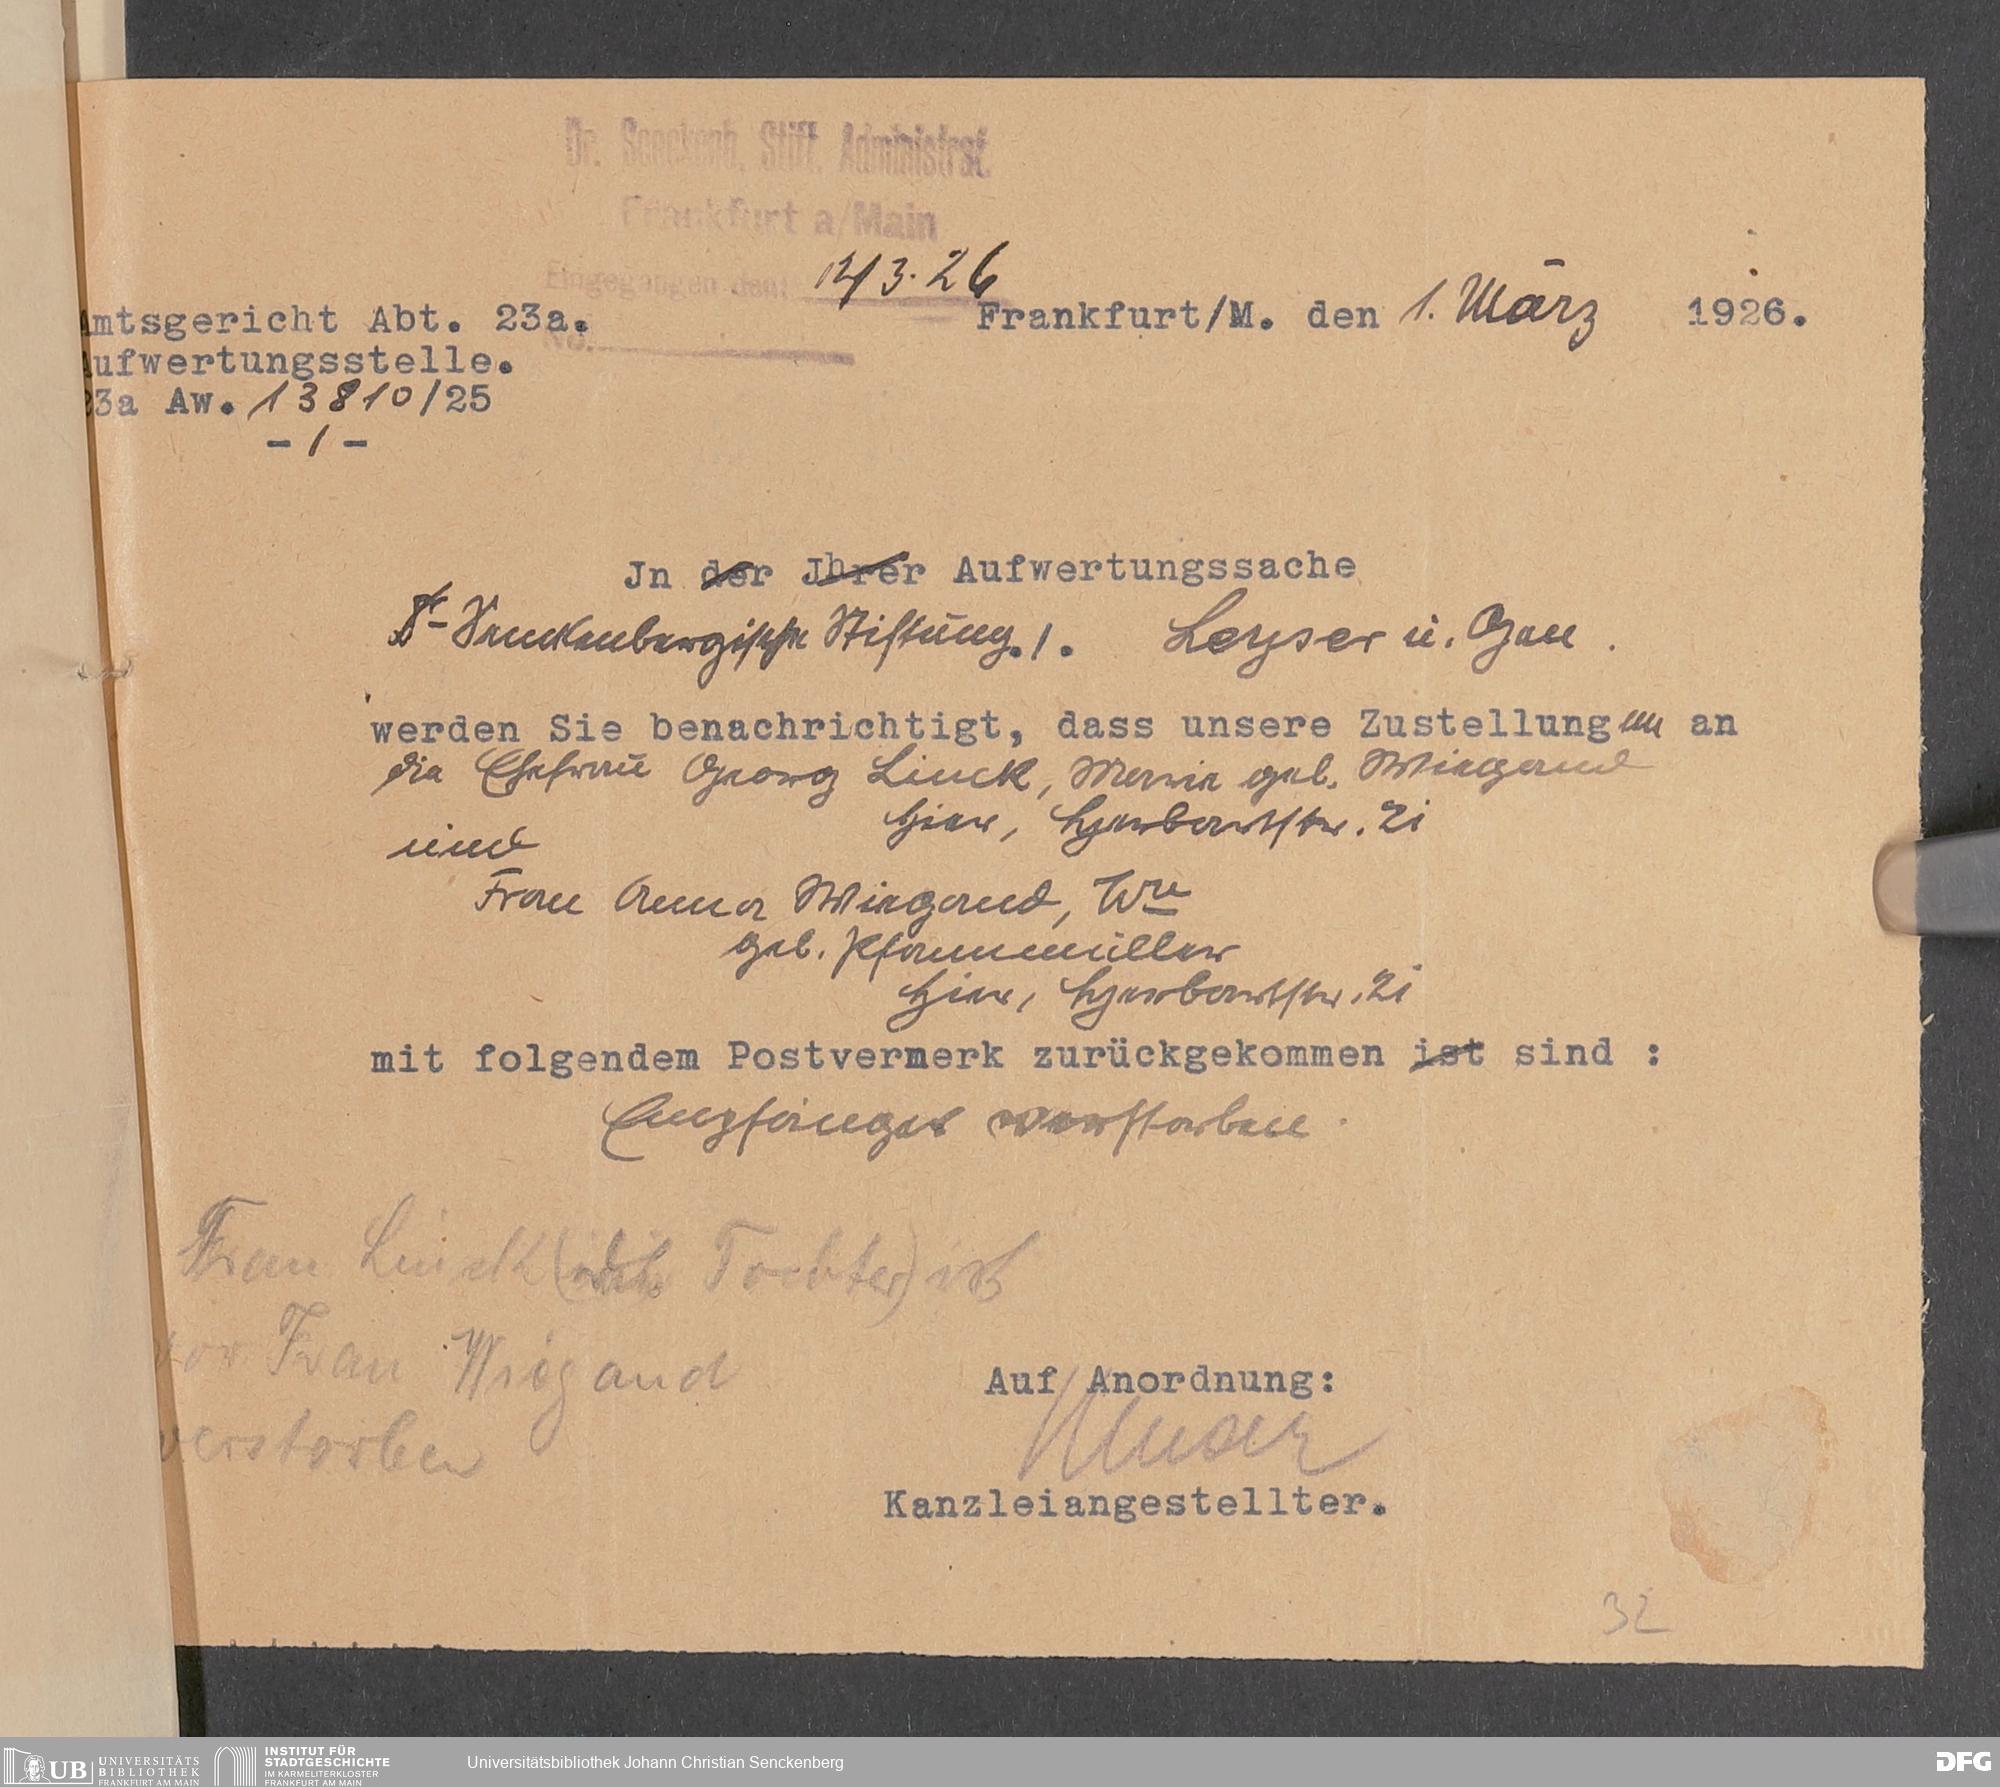 Dr. Senckenb. Stift. Administrat.
Frankfurt a/Main
Eingegangen den: 12/3. 26
Amtsgericht Abt. 23a.
Frankfurt/M. den 1. März 1926.
No.
Aufwertungsstelle.
23a Aw. 13810/25
- 1 -
Jn der Jhrer Aufwertungssache
Dr Senckenbergische Stiftung ./. Leyser u. Gen.
werden Sie benachrichtigt, dass unsere Zustellungen an
die Ehefrau Georg Linck, Marie geb. Wiegand
hier, Herbartstr. 21
und
Frau Anna Wiegand, Wwe
geb. Pfannmüller
hier, Herbartstr. 21
mit folgendem Postvermerk zurückgekommen ist sind :
Empfänger verstorben.
Frau Linck (die Tochter) ist
vor Frau Wiegand
verstorben
Auf Anordnung:
Kanzleiangestellter.
32
UB UNIVERSITÄTS
BIBLIOTHEK
FRANKFURT AM MAIN
INSTITUT FÜR
STADTGESCHICHTE
IM KARMELITERKLOSTER
FRANKFURT AM MAIN
Universitätsbibliothek Johann Christian Senckenberg
DFG